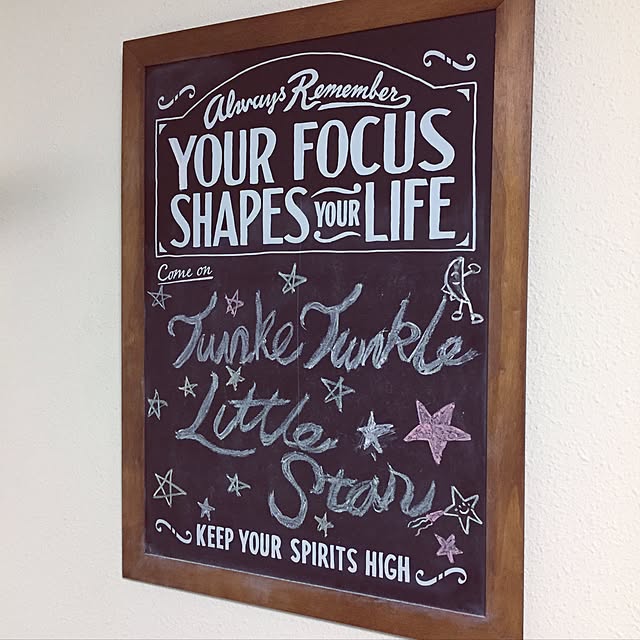 Always Remember
YOUR FOCUS
SHAPES YOUR LIFE
Come on
Twnke Twnkle
Little
Star
KEEP YOUR SPIRITS HIGH